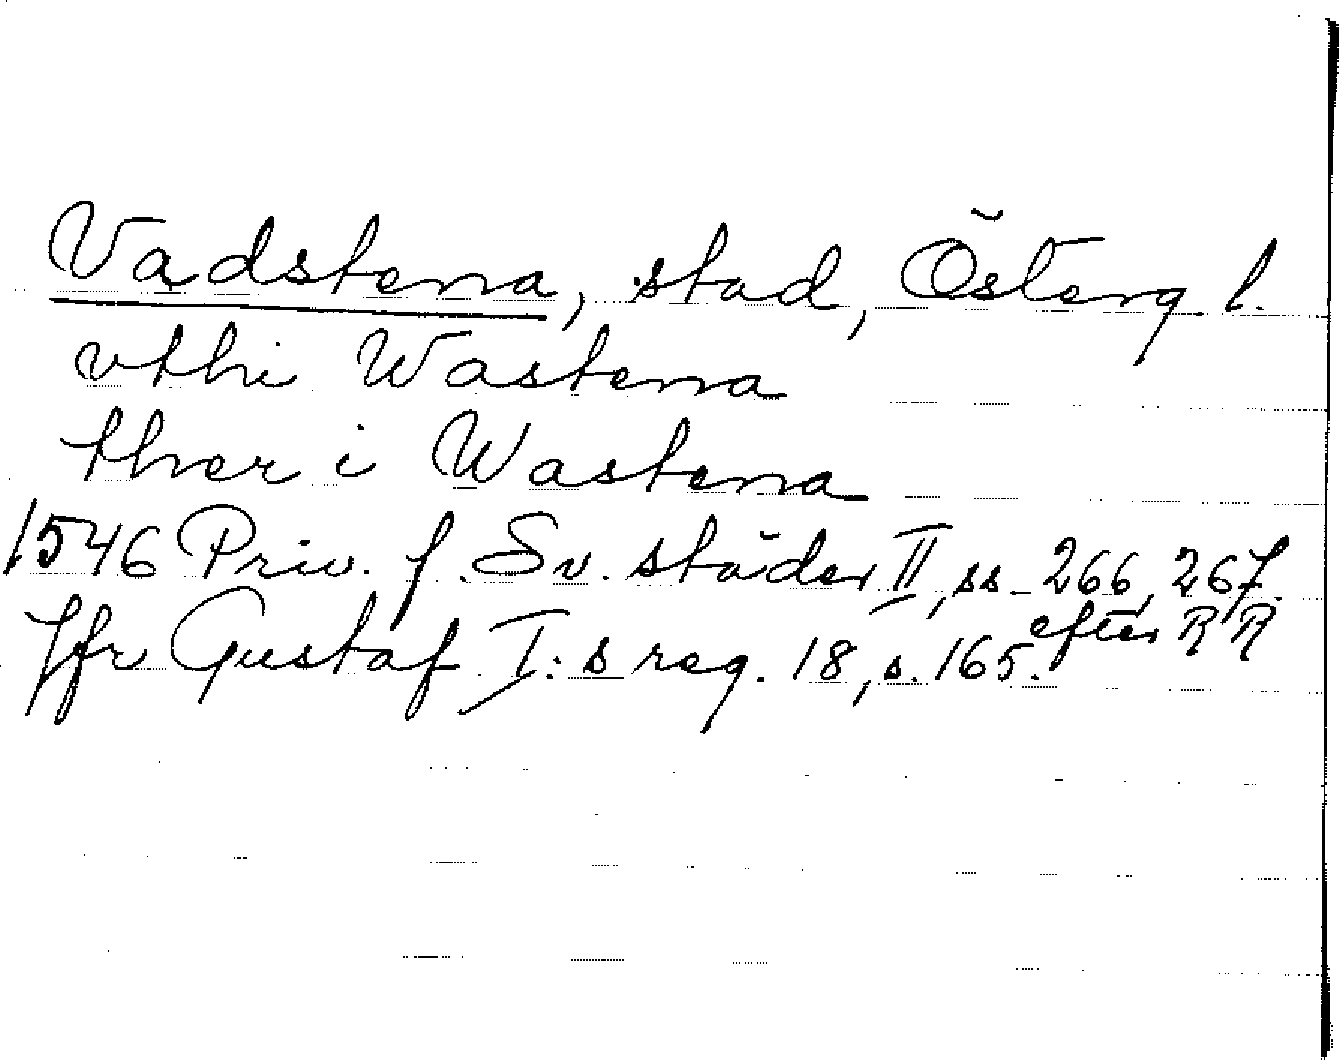 Vadstena, stad, Österg. l.
vthi Wastena
ther i Wastena
1546 Priv. f. Sv. städer II, ss. 266, 267.
Jfr Gustaf I:s reg. 18, s. 165. efter RR